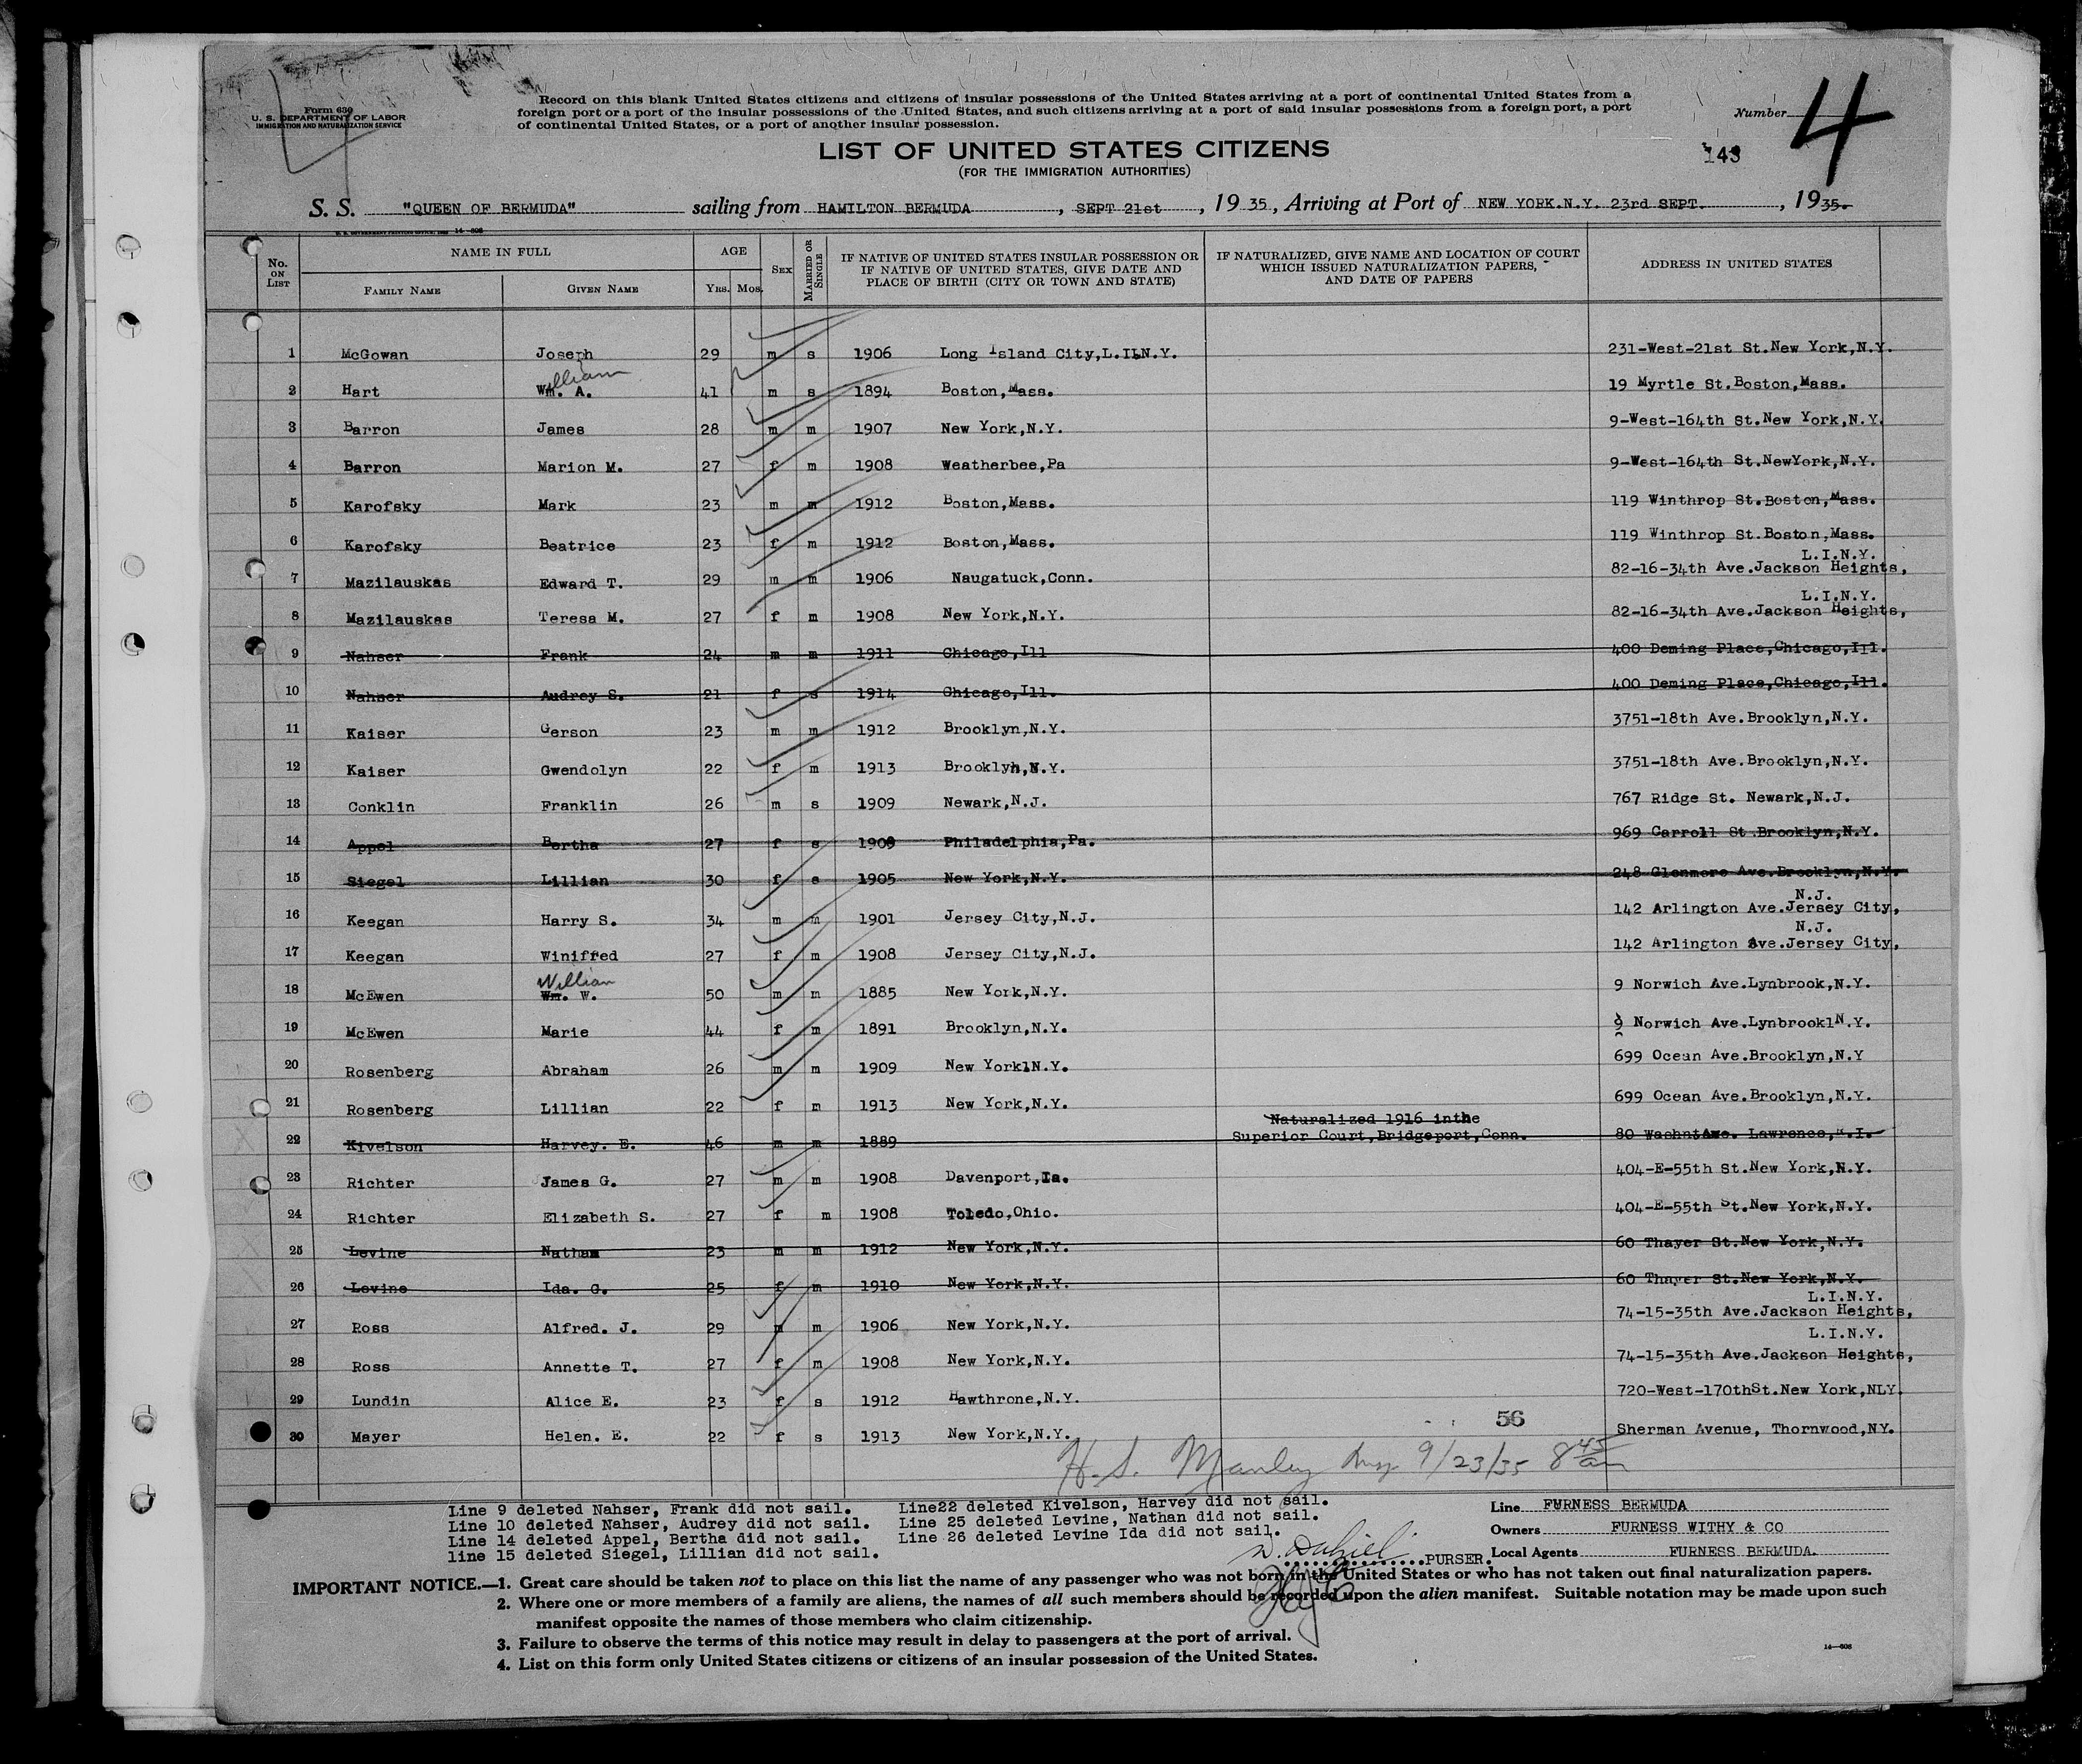 Form 630
U. S. DEPARTMENT OF LABOR
IMMIGRATION AND NATURALIZATION SERVICE
Record on this blank United States citizens and citizens of insular possessions of the United States arriving at a port of continental United States from a
foreign port or a port of the insular possessions of the United States, and such citizens arriving at a port of said insular possessions from a foreign port, a port
of continental United States, or a port of another insular possession.
Number 4
LIST OF UNITED STATES CITIZENS
(FOR THE IMMIGRATION AUTHORITIES)
143
S. S. "QUEEN OF BERMUDA" sailing from HAMILTON BERMUDA, SEPT 21st, 19 35, Arriving at Port of NEW YORK.N.Y. 23rd SEPT., 19 35.
No. ON LIST NAME IN FULL FAMILY NAME GIVEN NAME AGE YRS. MOS. SEX MARRIED OR SINGLE IF NATIVE OF UNITED STATES INSULAR POSSESSION OR IF NATIVE OF UNITED STATES, GIVE DATE AND PLACE OF BIRTH (CITY OR TOWN AND STATE) IF NATURALIZED, GIVE NAME AND LOCATION OF COURT WHICH ISSUED NATURALIZATION PAPERS, AND DATE OF PAPERS ADDRESS IN UNITED STATES
1 McGowan Joseph 29 m s 1906 Long Island City,L.I.N.Y. 231-West-21st St.New York,N.Y.
William
2 Hart Wm. A. 41 m s 1894 Boston,Mass. 19 Myrtle St.Boston,Mass.
3 Barron James 28 m m 1907 New York,N.Y. 9-West-164th St.New York,N.Y.
4 Barron Marion M. 27 f m 1908 Weatherbee,Pa 9-West-164th St.NewYork,N.Y.
5 Karofsky Mark 23 m m 1912 Boston,Mass. 119 Winthrop St.Boston,Mass.
6 Karofsky Beatrice 23 f m 1912 Boston,Mass. 119 Winthrop St.Boston,Mass.
L.I.N.Y.
7 Mazilauskas Edward T. 29 m m 1906 Naugatuck,Conn. 82-16-34th Ave.Jackson Heights,
L.I.N.Y.
8 Mazilauskas Teresa M. 27 f m 1908 New York,N.Y. 82-16-34th Ave.Jackson Heights,
9 Nahser Frank 24 m m 1911 Chicago,Ill 400 Deming Place,Chicago,Ill.
10 Nahser Audrey S. 21 f s 1914 Chicago,Ill. 400 Deming Place,Chicago,Ill.
11 Kaiser Gerson 23 m m 1912 Brooklyn,N.Y. 3751-18th Ave.Brooklyn,N.Y.
12 Kaiser Gwendolyn 22 f m 1913 Brooklyn,N.Y. 3751-18th Ave.Brooklyn,N.Y.
13 Conklin Franklin 26 m s 1909 Newark,N.J. 767 Ridge St. Newark,N.J.
14 Appel Bertha 27 f s 1908 Philadelphia,Pa. 969 Carroll St.Brooklyn,N.Y.
15 Siegel Lillian 30 f s 1905 New York,N.Y. 248 Glenmore Ave.Brooklyn,N.Y.
N.J.
16 Keegan Harry S. 34 m m 1901 Jersey City,N.J. 142 Arlington Ave.Jersey City,
N.J.
17 Keegan Winifred 27 f m 1908 Jersey City,N.J. 142 Arlington Ave.Jersey City,
William
18 McEwen Wm. W. 50 m m 1885 New York,N.Y. 9 Norwich Ave.Lynbrook,N.Y.
19 McEwen Marie 44 f m 1891 Brooklyn,N.Y. 9 Norwich Ave.LynbrooklN.Y.
20 Rosenberg Abraham 26 m m 1909 New YorklN.Y. 699 Ocean Ave.Brooklyn,N.Y
21 Rosenberg Lillian 22 f m 1913 New York,N.Y. 699 Ocean Ave.Brooklyn,N.Y.
Naturalized 1916 inthe
22 Kivelson Harvey. E. 46 m m 1889 Superior Court,Bridgeport,Conn. 80 Ave. Lawrence,
23 Richter James G. 27 m m 1908 Davenport,Ia. 404-E-55th St.New York,N.Y.
24 Richter Elizabeth S. 27 f m 1908 Toledo,Ohio. 404-E-55th St.New York,N.Y.
25 Levine Nathan 23 m m 1912 New York,N.Y. 60 Thayer St.New York,N.Y.
26 Levine Ida. G. 25 f m 1910 New York,N.Y. 60 Thayer St.New York,N.Y.
L.I.N.Y.
27 Ross Alfred. J. 29 m m 1906 New York,N.Y. 74-15-35th Ave.Jackson Heights,
L.I.N.Y.
28 Ross Annette T. 27 f m 1908 New York,N.Y. 74-15-35th Ave.Jackson Heights,
29 Lundin Alice E. 23 f s 1912 Hawthrone,N.Y. 720-West-170thSt.New York,NLY.
56
30 Mayer Helen. E. 22 f s 1913 New York,N.Y. Sherman Avenue, Thornwood,NY.
H. S. Manley Insp. 9/23/35 8 45 am
Line 9 deleted Nahser, Frank did not sail. Line22 deleted Kivelson, Harvey did not sail.
Line 10 deleted Nahser, Audrey did not sail. Line 25 deleted Levine, Nathan did not sail.
Line 14 deleted Appel, Bertha did not sail. Line 26 deleted Levine Ida did not sail.
line 15 deleted Siegel, Lillian did not sail.
PURSER.
Line FURNESS BERMUDA
Owners FURNESS WITHY & CO
Local Agents FURNESS BERMUDA.
IMPORTANT NOTICE.—1. Great care should be taken not to place on this list the name of any passenger who was not born in the United States or who has not taken out final naturalization papers.
2. Where one or more members of a family are aliens, the names of all such members should be recorded upon the alien manifest. Suitable notation may be made upon such
manifest opposite the names of those members who claim citizenship.
3. Failure to observe the terms of this notice may result in delay to passengers at the port of arrival.
4. List on this form only United States citizens or citizens of an insular possession of the United States.
14—808